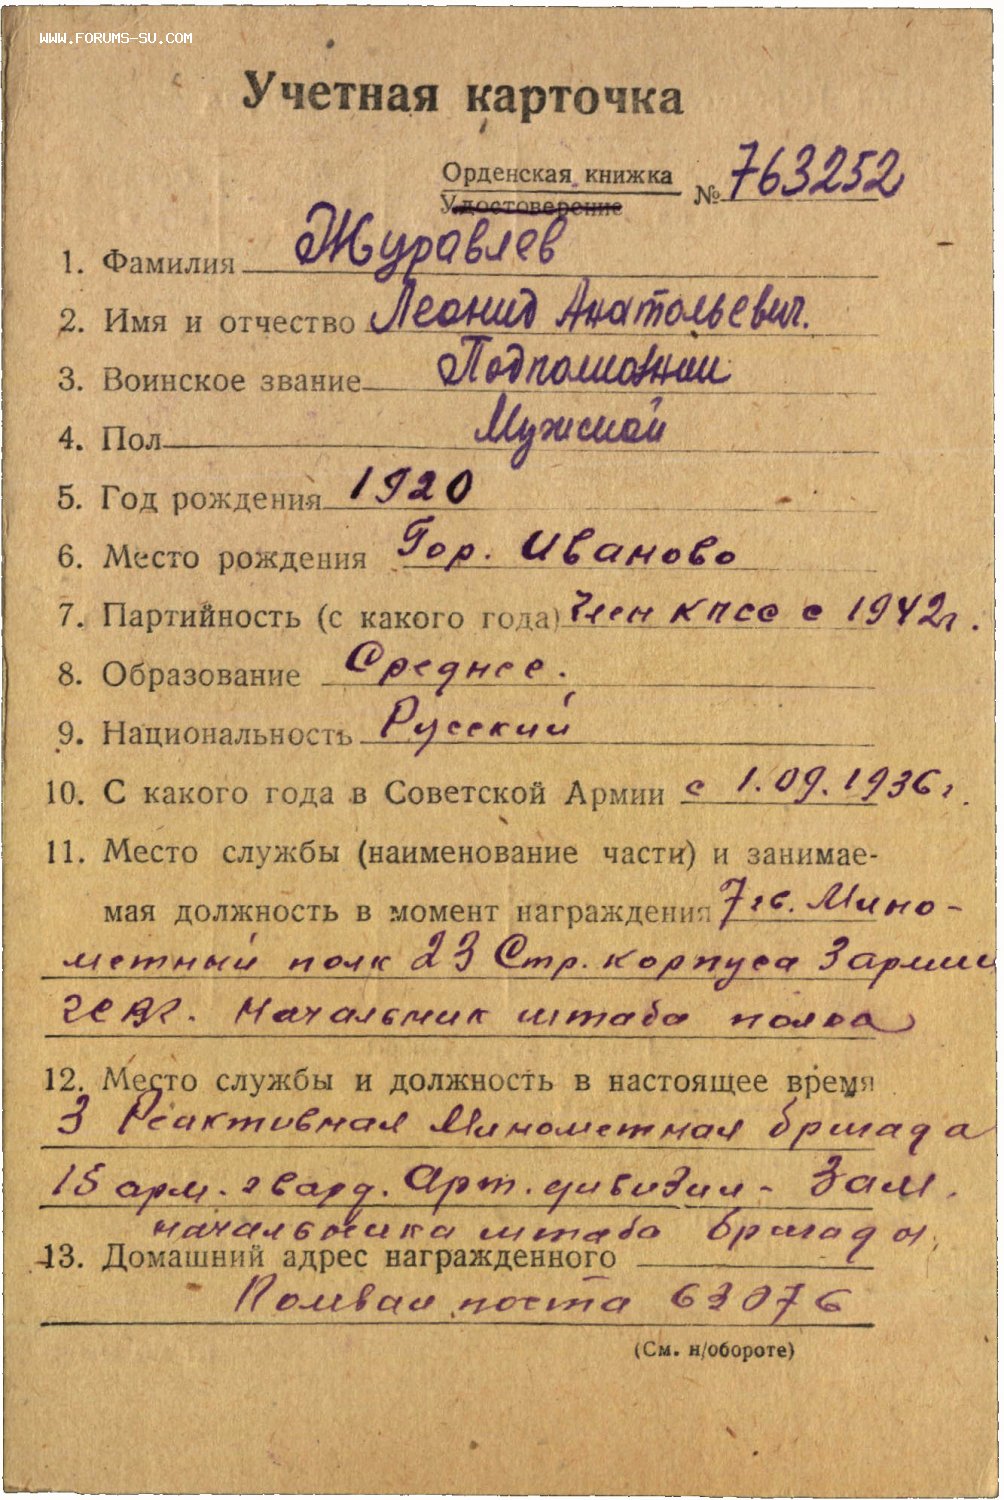 WWW.FORUMS-SU.COM
Учетная карточка
Орденская книжка
Удостоверение
№ 763252
1. Фамилия Журавлев
2. Имя и отчество Леонид Анатольевич.
3. Воинское звание Подполковник
4. Пол Мужской
5. Год рождения 1920
6. Место рождения Гор. Иваново
7. Партийность (с какого года) Член КПСС с 1942г.
8. Образование Среднее.
9. Национальность Русский
10. С какого года в Советской Армии с 1.09.1936г.
11. Место службы (наименование части) и занимае-
мая должность в момент награждения 7 гв. Мино-
метный полк 23 Стр. корпуса 3 армии
Начальник штаба полка
12. Место службы и должность в настоящее время
3 Реактивная Минометная бригада
15 арм. гвард. Арт. дивизии - Зам.
начальника штаба бригады.
13. Домашний адрес награжденного
Полевая почта 63076
(См. н/обороте)